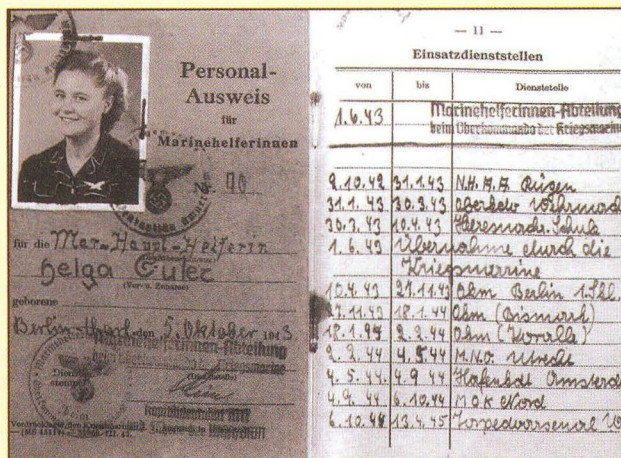 Personal-
Ausweis
für
Marinehelferinnen
Nr. 70
für die Mar.-Haupt-Helferin
Helga
(Vor- u. Zuname)
geborene
Berlin den 5. Oktober 1943
Marinehelferinnen-Abteilung
beim Oberkommando der Kriegsmarine
(Dienststelle)
— 11 —
Einsatzdienststellen
von bis Dienststelle
1.6.43 Marinehelferinnen-Abteilung
beim Oberkommando der Kriegsmarine
9.10.42 31.1.43 N.H. Rügen
31.1.43 30.3.43
30.3.43 10.4.43 Heeresnachr. Schule
1.6.43 Übernahme durch die
Kriegsmarine
10.4.43 21.11.43 Okm Berlin
18.1.44 Okm (Bismark)
18.1.44 2.2.44 Okm (Koralle)
2.2.44 4.5.44 M.N.O. Utrecht
4.5.44. 4.9.44 Hafenkdt Amsterd
4.9.44 6.10.44 MOK Nord
6.10.44 13.4.45 Torpedoarsenal